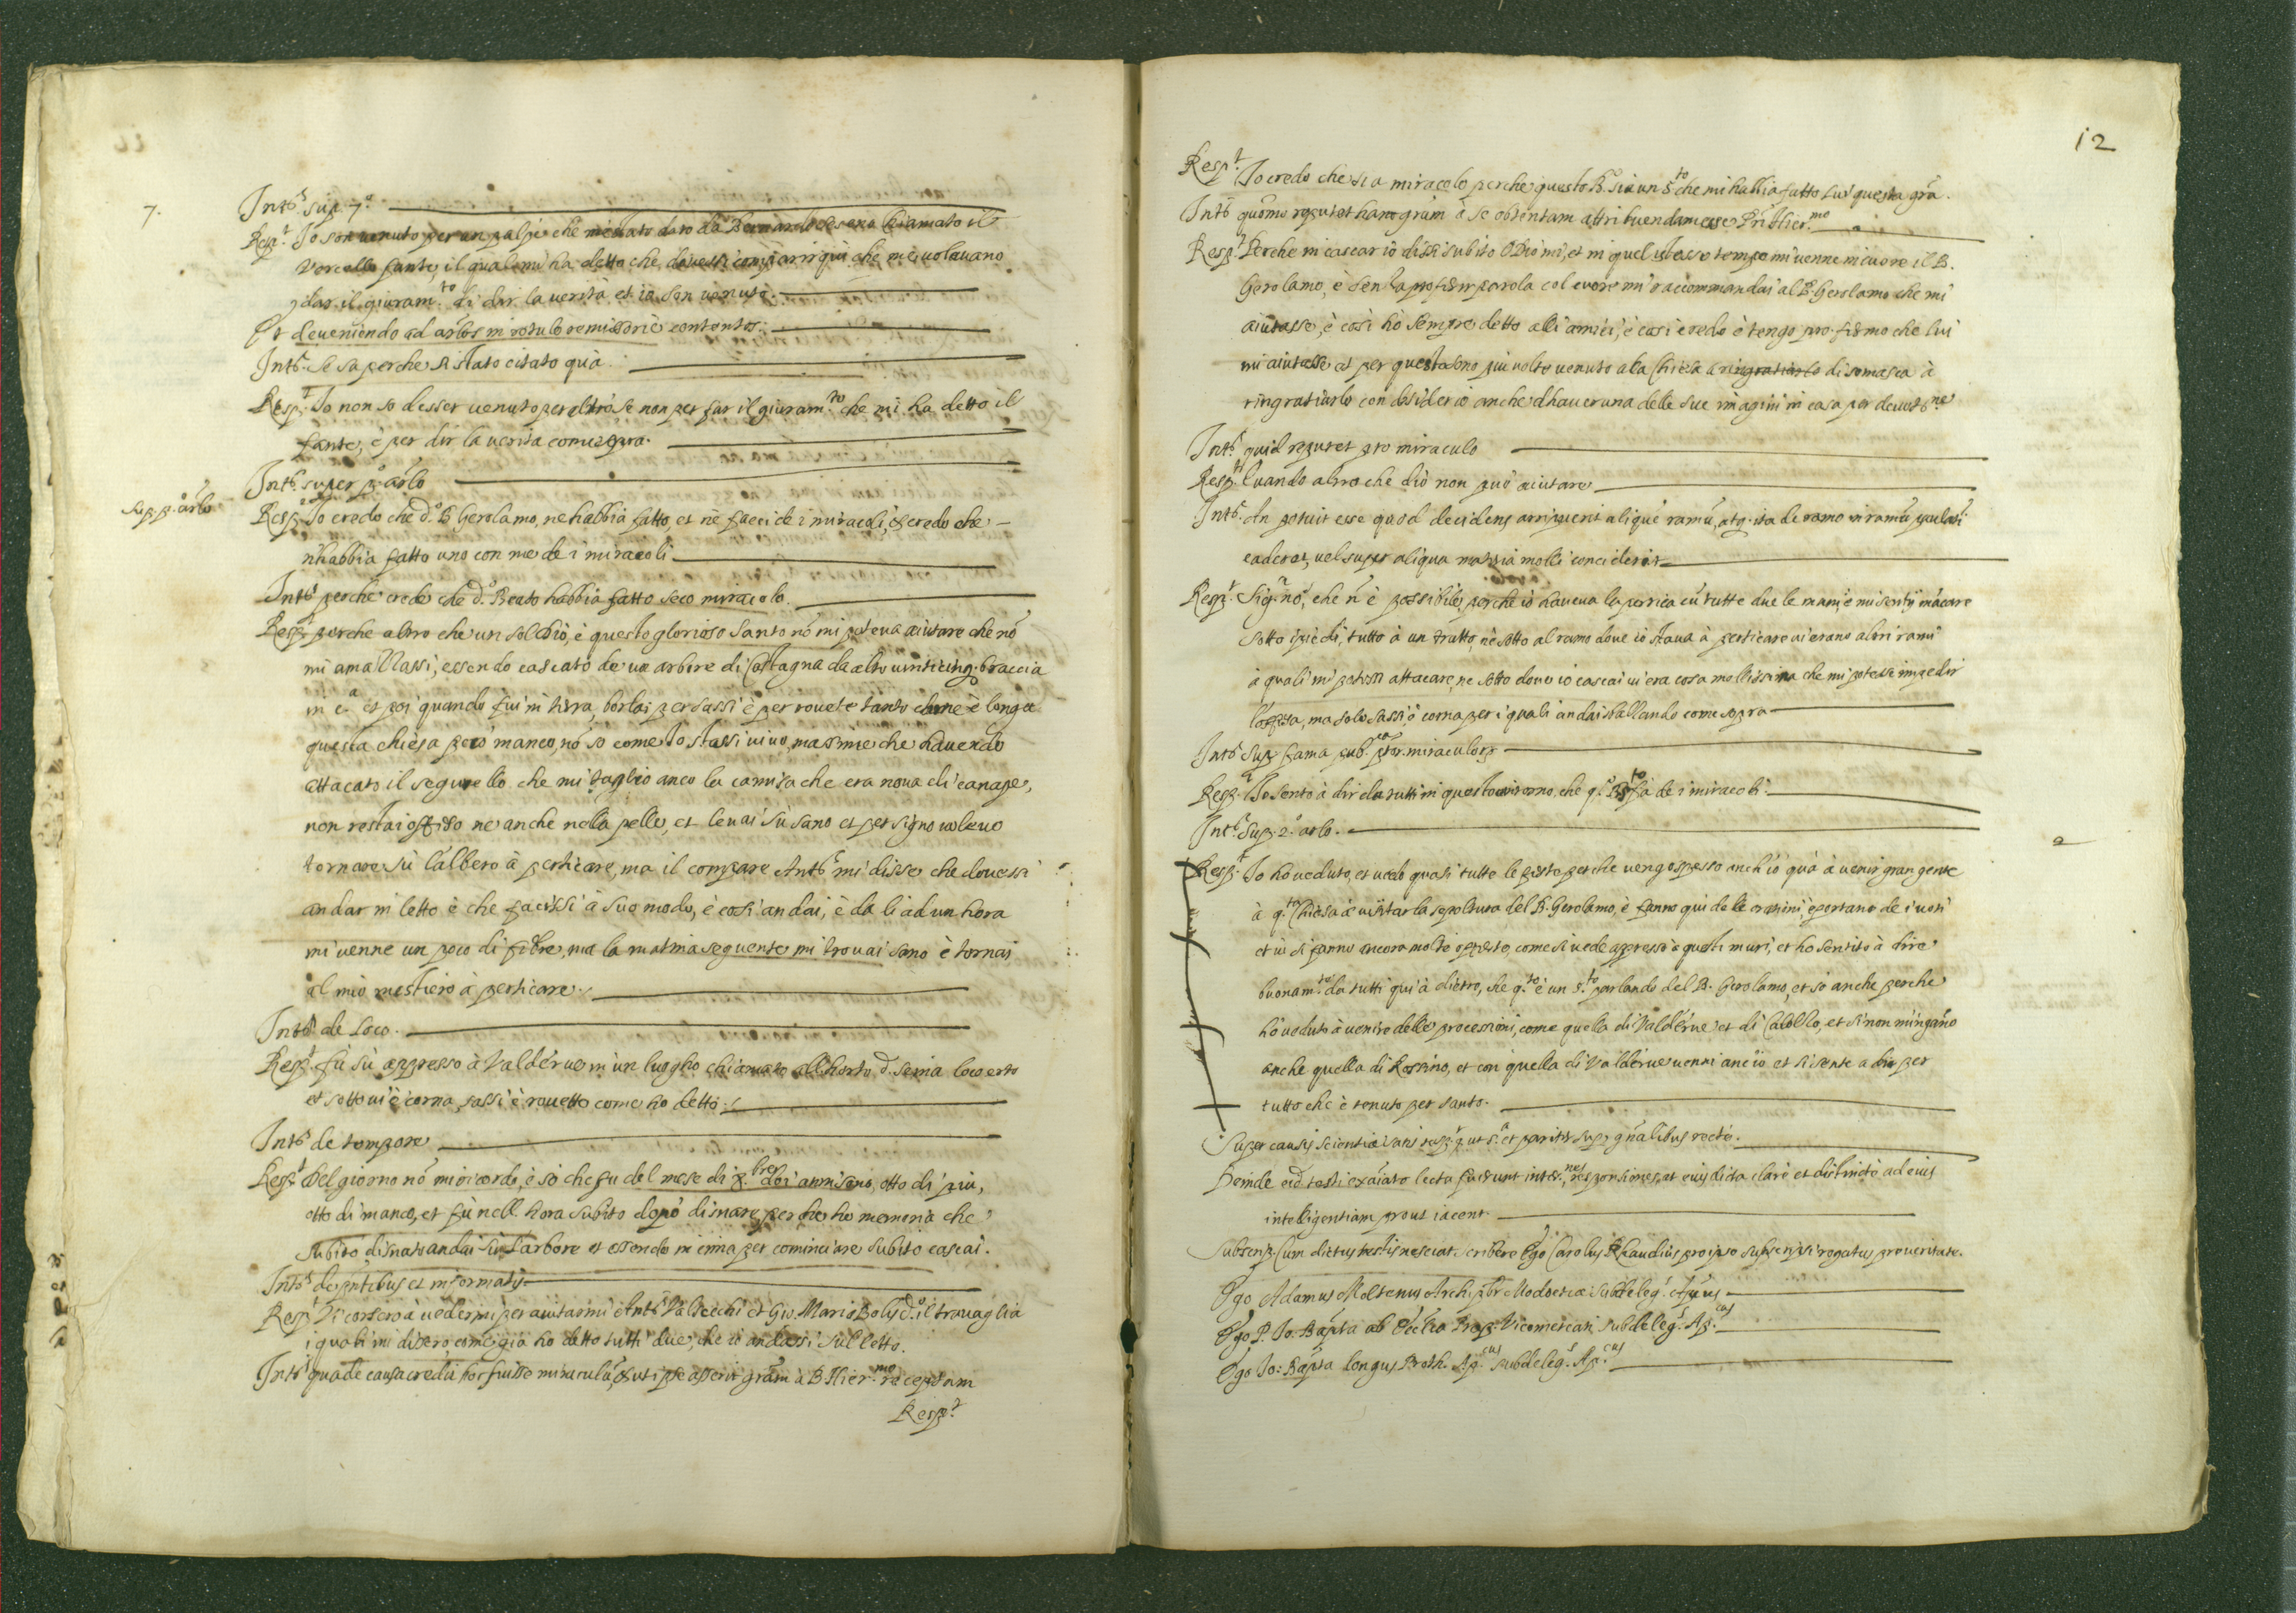 7.
Intʳ. sup. 7.º
Respᵗ. Io son venuto per un palpè che m'è stato dato da Bernardo Cesena chiamato il
Vercello fante, il qual mi ha detto che dovessi comparir qui che me volevano
dar il giuram.ᵗᵒ di dir la verità et io son venuto.
Et deveniendo ad arlos in rotulo remissoriè contentos.
Intʳ. Se sa perche sii stato citato quà.
Respᵗ. Io non so d'esser venuto per altro se non per far il giuram.ᵗᵒ che mi ha detto il
fante, è per dir la verità come sopra.
Intʳ. super pº. arlo
Sup. pº. arlo
Resp. Io credo che d.º B. Gerolamo, ne habbia fatto, et ne facci de i miracoli, et credo che
n'habbia fatto uno con me de i miracoli
Intʳ. perche crede che d.º Beato habbia fatto seco miracolo.
Respᵗ. perche altro che un sol Dio, è questo glorioso Santo nō mi poteva aiutare che nō
mi amazzassi, essendo cascato de un arbore di Castagna da alto vinticinq. braccia
in c.ᵃ et poi quando fui in terra, borlai per sassi è per rovete tanto come è longa
questa chiesa pocò manco, nō so come Io stassi vivo, massime che havendo
attacato il segurello che mi taglio anco la camisa che era nova di canape,
non restai offeso ne anche nella pelle, et levai sù sano et per signo volevo
tornare sù l'albero à perticare, ma il compare Antº mi disse che dovessi
andar in letto è che facessi à suo modo, è così andai, è da li ad un hora
mi venne un poco di febre, ma la matina seguente mi trovai sano è tornai
al mio mestiero à perticare.
Intʳ. de loco.
Respᵗ. fù sù appresso à Valderve in un luogho chiamato all'horto d. Senia loco erto
et sotto vi è corna, sassi è rovetto come ho detto.
Intʳ de tempore
Respᵗ. Del giorno nō mi ricordo, è so che fu del mese di x.ᵇʳᵉ doi anni sono, otto dì piu,
otto dì manco, et fù nell hora subito dopò disnare, perche ho memoria che
subito disnato andai sù l'arbore et essendo in cima per cominciare subito cascai.
Intʳ. de pntibus et informatis
Respᵗ. Vi corsero à vedermi per aiutarmi Antº Valsecchi et Gio. Mario Bolis d.º il travaglia
i quali mi dissero, come già ho detto tutti due, che io andassi sul letto.
Intʳ qua de causa credit hoc fuisse miraculū, et ut ipse asserit grām à B. Hier.ᵐᵒ receptam
Respᵗ.
12
Respᵗ. Io credo che sia miracolo perche questo B. sia un S.ᵗᵒ che mi habbia fatto lui questa grā.
Intʳ quomo reputet hanc grām à se obtentam attribuendam esse B. Hier.ᵐᵒ
Respᵗ. Perche in cascar io dissi subito O Dio mi, et in quel istesso tempo mi venne in cuore il B.
Gerolamo, è senza proferir parola col cuore mi raccommandai al B. Gerolamo che mi
aiutasse, è così hò sempre detto alli amici, è così credo è tengo pro. fermo che lui
mi aiutasse et per questo sono piu volte venuto ala Chiesa a ringratiarlo di somasca à
ringratiarlo con desiderio anche d'haver una delle sue imagini in casa per devot.ⁿᵉ
Intʳ. quid reputet pro miraculo
Respᵗ. Quando altro che dio non può aiutare
Intʳ. An potuit esse quod decidens arripuerit aliquē ramū, atq. ita de ramo in ramū paulati
caderet, vel super aliqua materia molli conciderit
Respᵗ. Sig.ʳ nò, che n è possibile, perche io haveva la pertica cū tutte due le mani, è mi sentij mācare
sotto i piedi, tutto à un tratto, nè sotto al ramo dove io stava à perticare vi erano altri rami
à quali mi potessi attacare, ne sotto dove io cascai vi era cosa mollissima che mi potesse impedir
l'offesa, ma solo sassi è corna per i quali andai sballando come sopra
Intʳ. Sup. fama pub.ᶜᵃ ptor. miraculor.
Respᵗ. Io sento à dir da tutti in questo contorno, che q.º B. fà de i miracoli.
Intʳ. Sup. 2.º arlo.
2
Respᵗ. Io hò veduto, et vedo quasi tutte le feste perche vengo spesso anch'io quà à venir gran gente
à q.ᵗᵃ Chiesa à visitar la sepoltura del B. Gerolamo, è fanno qui de le orationi, è portano de i voti
et vi si fanno ancora molte offerte, come si vede appresso questi muri, et ho sentito à dire
buonam.ᵗᵉ da tutti qui à dietro, che q.ᵗᵒ è un s.ᵗᵒ parlando del B. Gerolamo, et sò anche perche
hò veduto à venire delle processioni, come quella di Valderve et di Calolzo, et si non m'ingāno
anche quella di Rossino, et con quella di Valderve venni anc'io et si sente a dir per
tutto che è tenuto per santo.
Super causis scientiæ satis resp.ᵗ ut s.ᵃ et pariter sup. gnalibus recte.
Deinde eid. testi exaiato lecta fuerunt inter.ⁿᵉˢ, responsiones, et eius dicta clarè et distinctè ad eius
intelligentiam prout iacent.
Subscrip. Cum dictus testis nesciat scribere Ego Carolus Rhaudius pro ipso subscripsi rogatus pro veritate.
Ego Adamus Moltenus Archipbr Modoetiæ Subdeleg. Aplicus
Ego P. Io. Bapta ab Prep. Vicomercati subdeleg.ˢ Ap.ᶜᵘˢ
Ego Io: Bapta longus Proth. Ap.ᶜᵘˢ subdeleg.ˢ Ap.ᶜᵘˢ